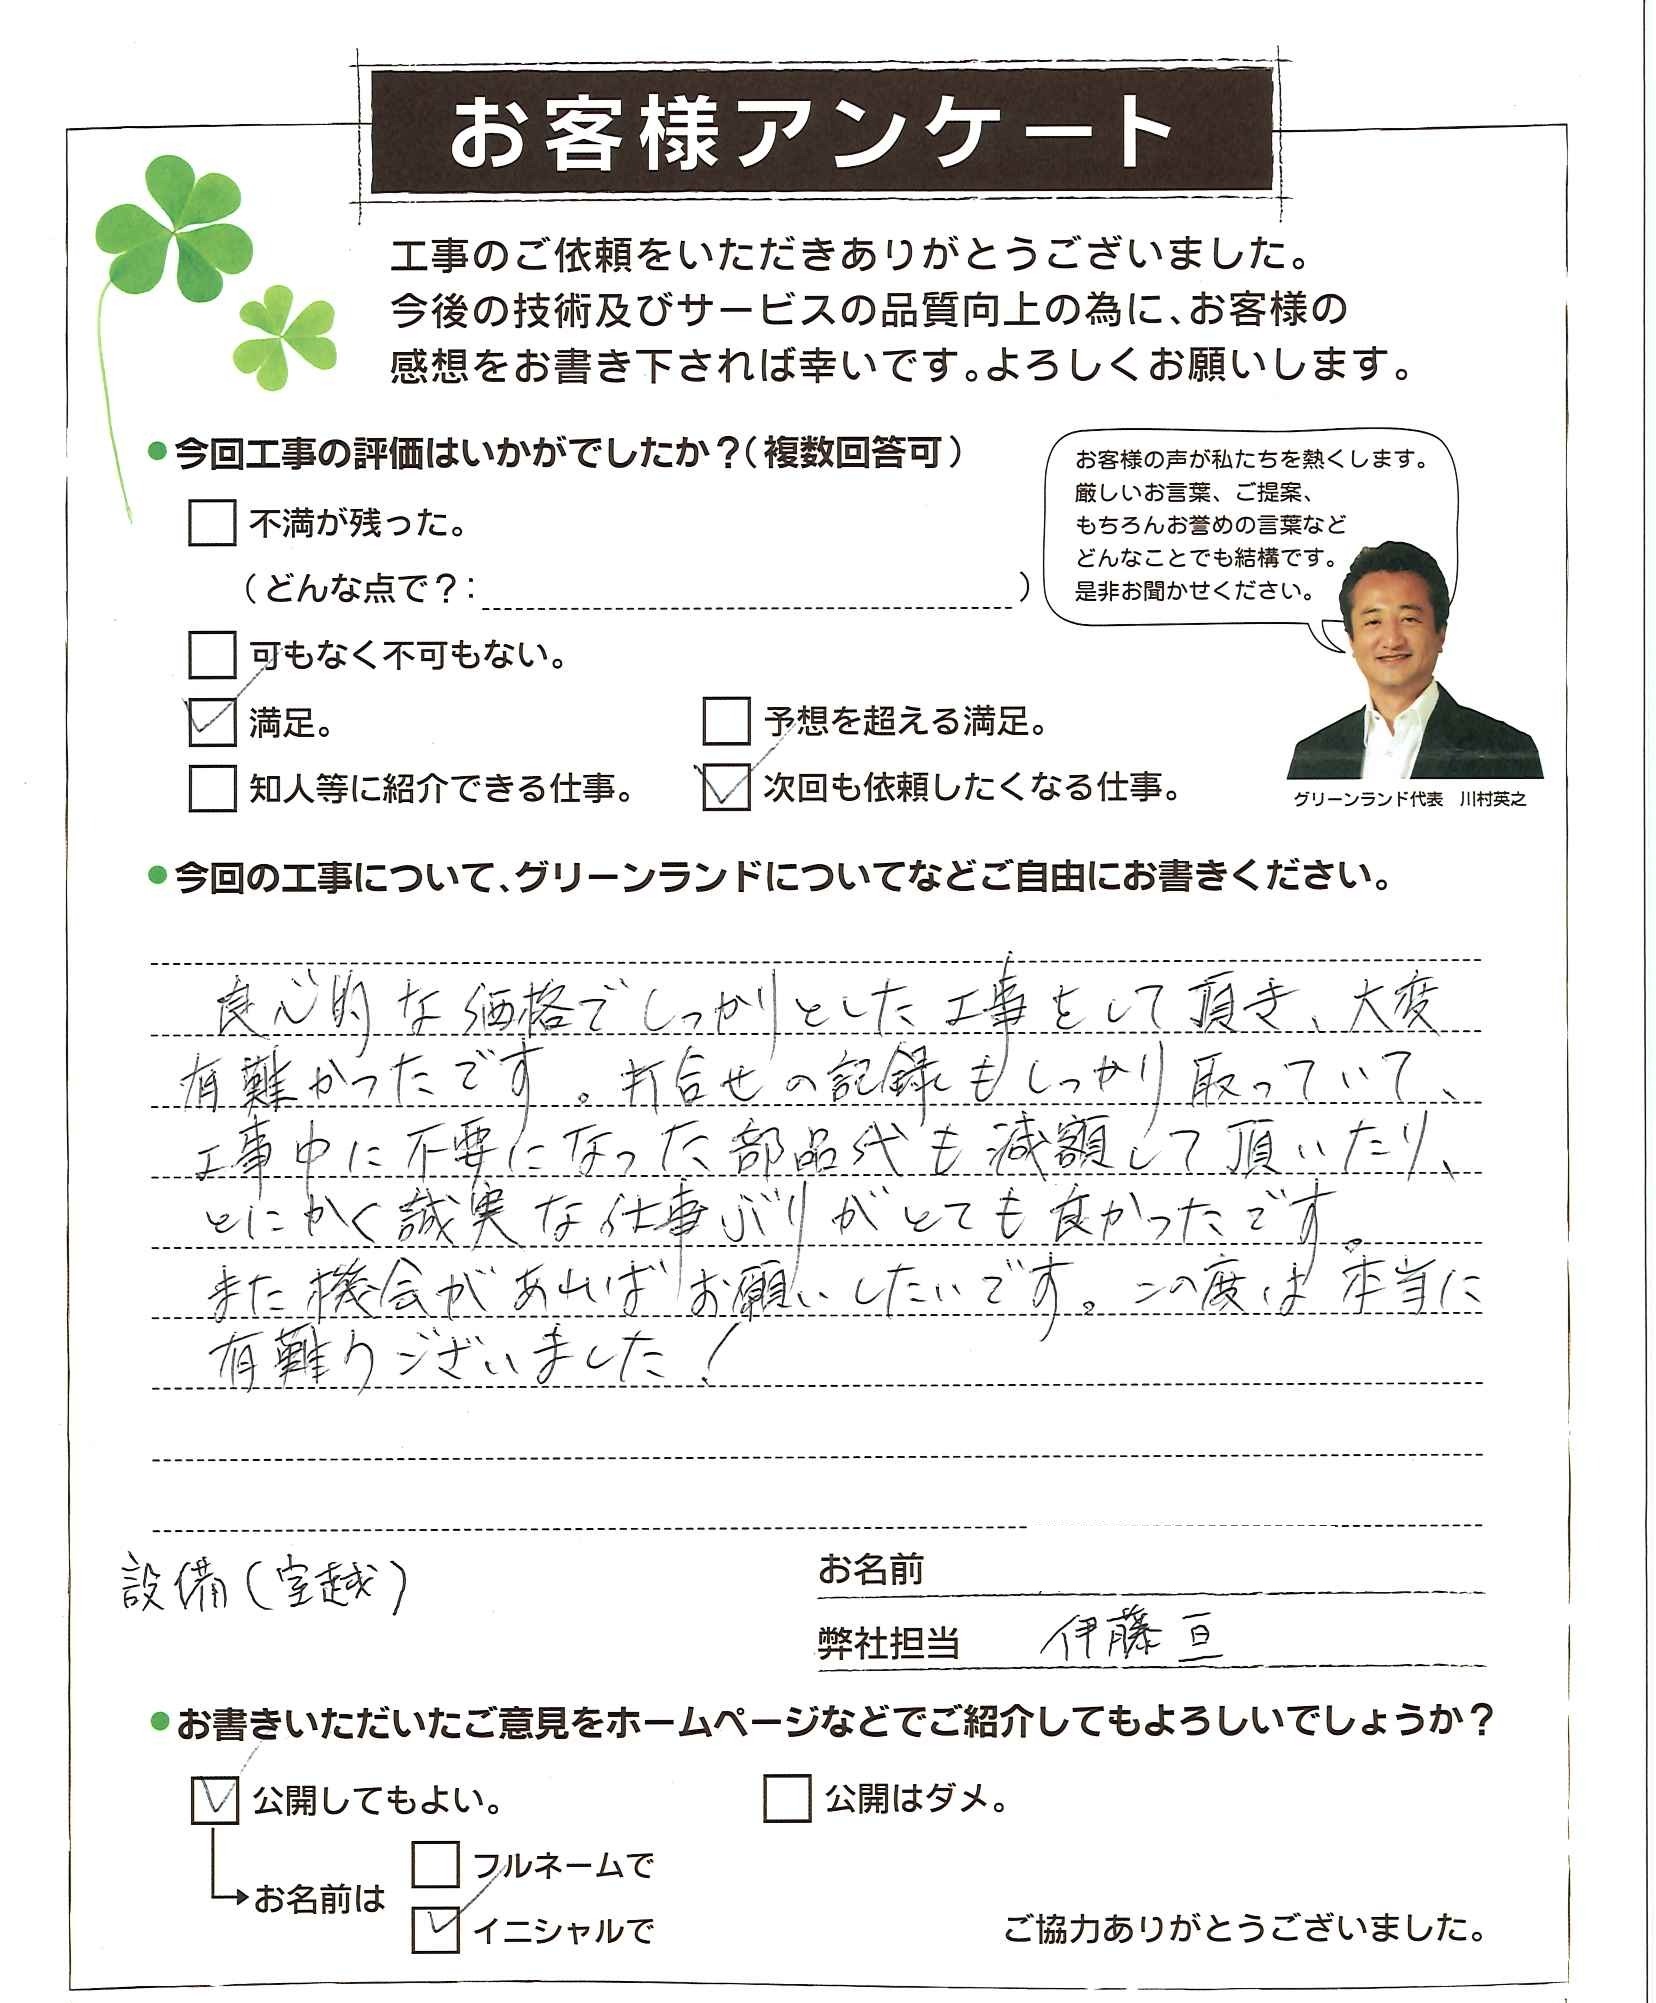 お客様アンケート
工事のご依頼をいただきありがとうございました。
今後の技術及びサービスの品質向上の為に、お客様の
感想をお書き下されば幸いです。よろしくお願いします。
●今回工事の評価はいかがでしたか？（複数回答可）
お客様の声が私たちを熱くします。
厳しいお言葉、ご提案、
もちろんお誉めの言葉など
どんなことでも結構です。
是非お聞かせください。
不満が残った。
（どんな点で？： ）
可もなく不可もない。
満足。
予想を超える満足。
知人等に紹介できる仕事。
次回も依頼したくなる仕事。
グリーンランド代表　川村英之
●今回の工事について、グリーンランドについてなどご自由にお書きください。
良心的な価格でしっかりとした工事をして頂き、大変
有難かったです。打合せの記録もしっかり取っていて、
工事中に不要になった部品代も減額して頂いたり、
とにかく誠実な仕事ぶりがとても良かったです。
また機会があればお願いしたいです。この度は本当に
有難うございました！
設備（室越）
お名前
弊社担当　伊藤亘
●お書きいただいたご意見をホームページなどでご紹介してもよろしいでしょうか？
公開してもよい。
公開はダメ。
お名前は
フルネームで
イニシャルで
ご協力ありがとうございました。